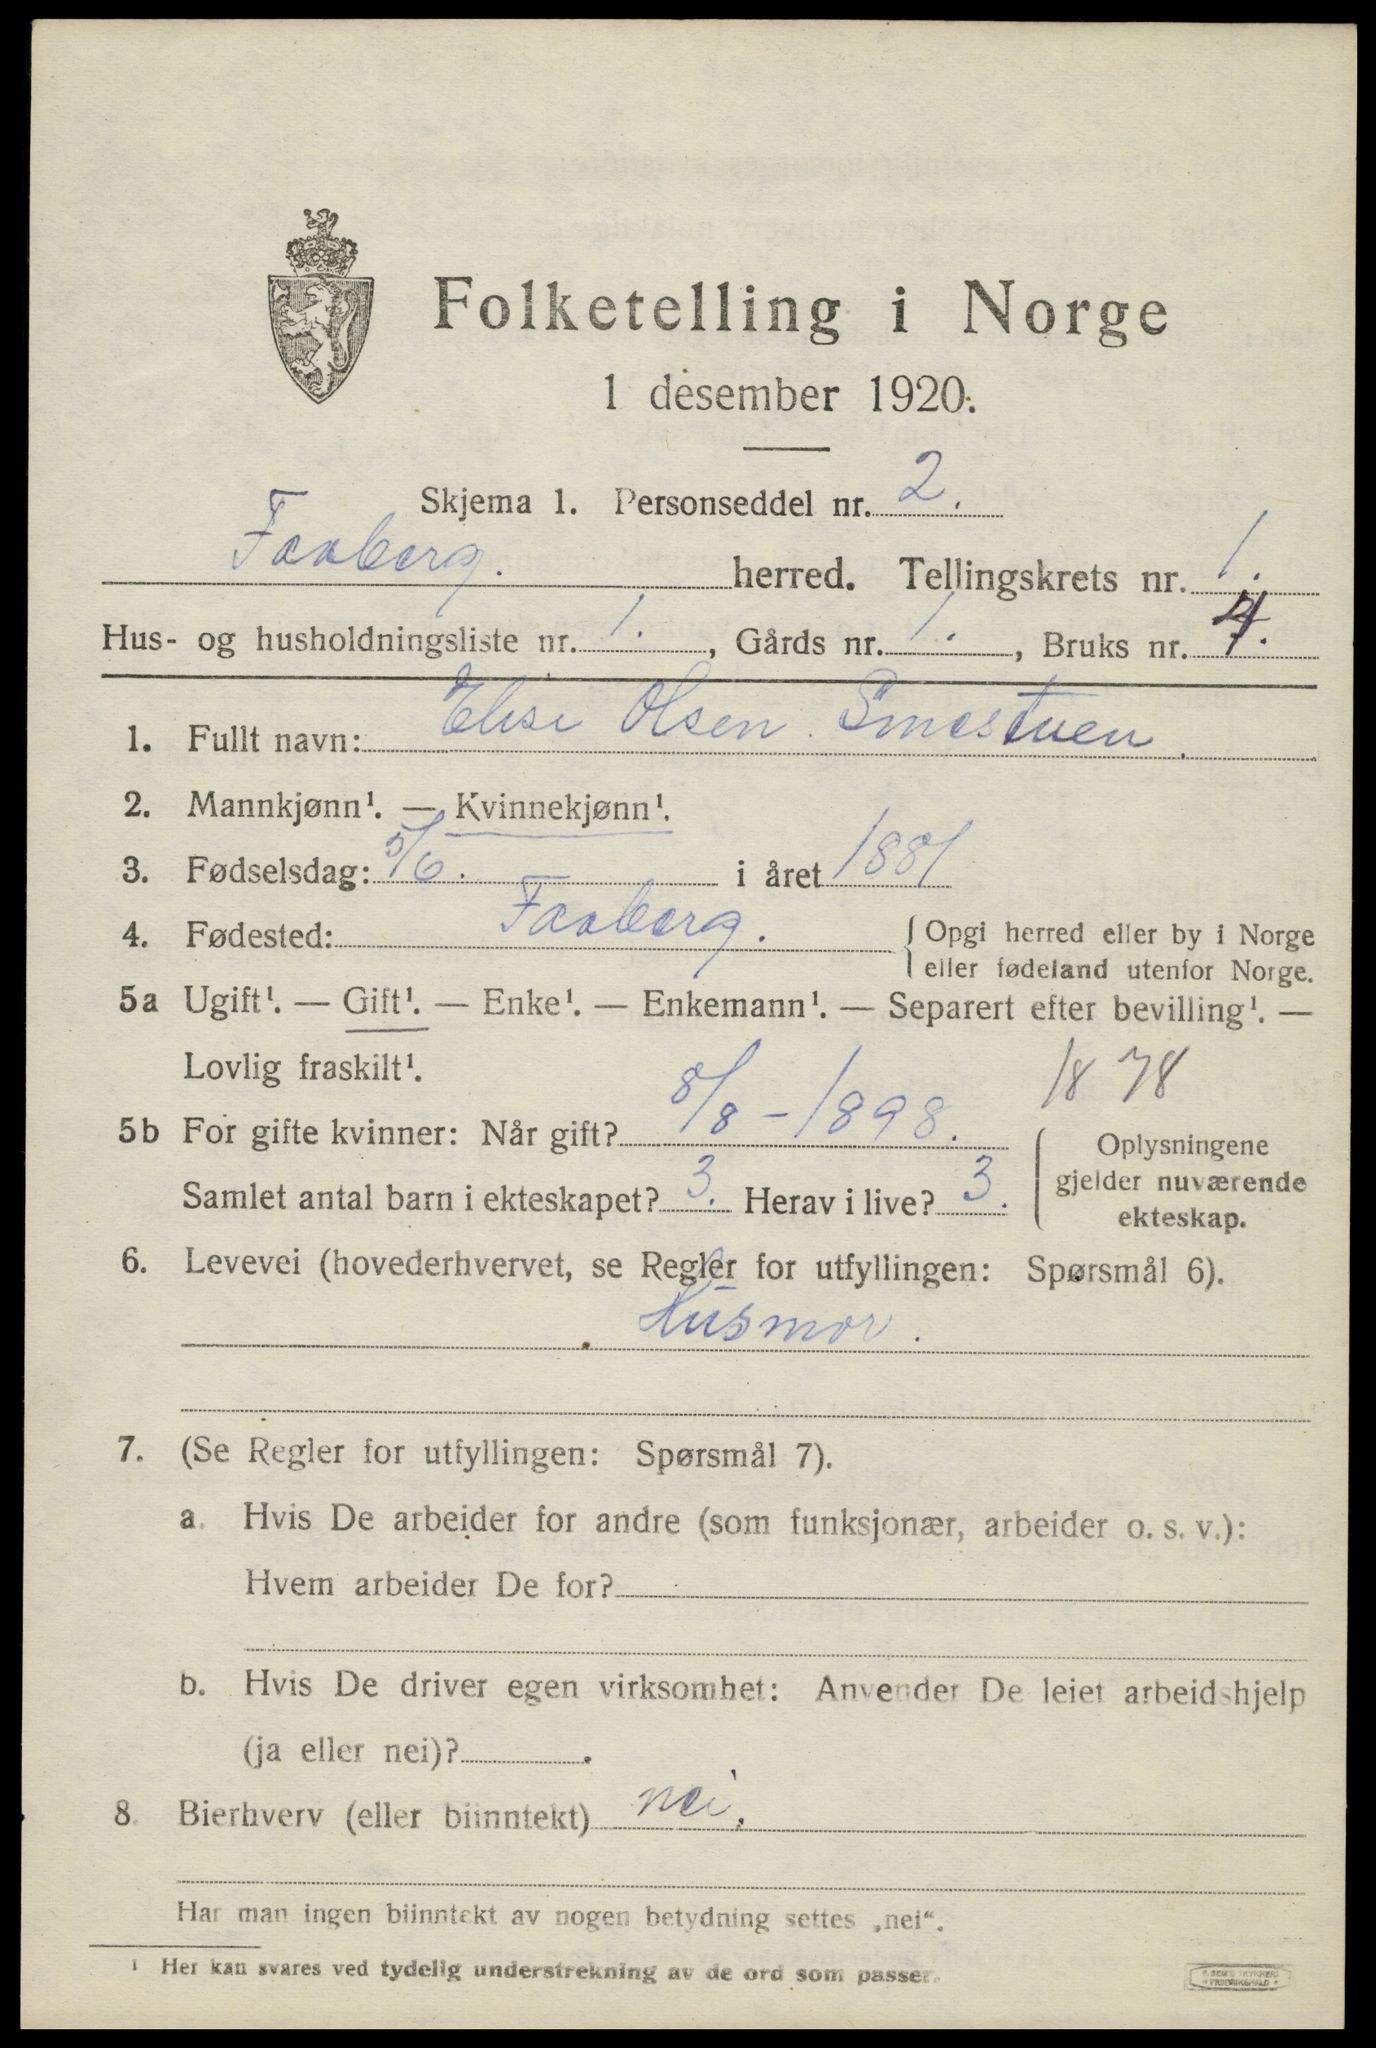 Folketelling i Norge
1 desember 1920.
Skjema 1. Personseddel nr. 2.
Faaberg. herred. Tellingskrets nr. 1.
Hus- og husholdningsliste nr. 1., Gårds nr. 1., Bruks nr. 4.
1. Fullt navn: Elise Olsen Smestuen.
2. Mannkjønn¹. — Kvinnekjønn¹.
3. Fødselsdag: 5/6. i året 1881
4. Fødested: Faaberg. { Opgi herred eller by i Norge
eller fødeland utenfor Norge.
5a Ugift¹. — Gift¹. — Enke¹. — Enkemann¹. — Separert efter bevilling¹. —
Lovlig fraskilt¹.
1878
5b For gifte kvinner: Når gift? 8/8 - 1898.
Samlet antal barn i ekteskapet? 3. Herav i live? 3.
{ Oplysningene
gjelder nuværende
ekteskap.
6. Levevei (hovederhvervet, se Regler for utfyllingen: Spørsmål 6).
Husmor.
7. (Se Regler for utfyllingen: Spørsmål 7).
a. Hvis De arbeider for andre (som funksjonær, arbeider o. s. v.):
Hvem arbeider De for?
b. Hvis De driver egen virksomhet: Anvender De leiet arbeidshjelp
(ja eller nei)?
8. Bierhverv (eller biinntekt) nei.
Har man ingen biinntekt av nogen betydning settes „nei“.
¹ Her kan svares ved tydelig understrekning av de ord som passer.